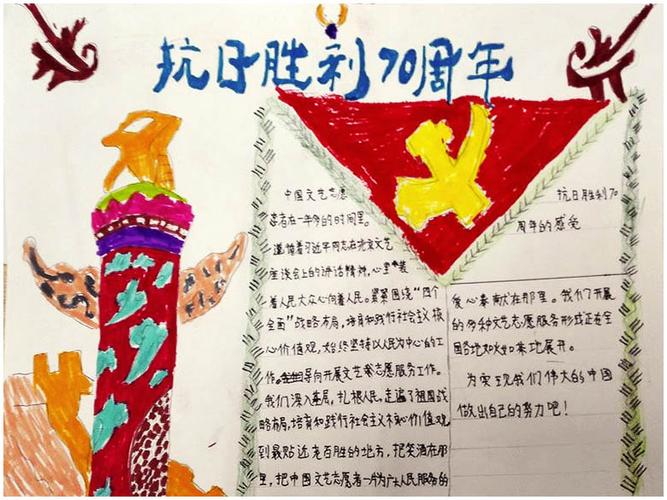 抗日胜利70周年
中国文艺志愿
者在一年多的时间里。
遵循着习近平同志在北京文艺
座谈会上的讲话精神，心里装
着人民大众心向着人民。紧紧围绕“四个
全面”战略布局，培育和践行社会主义核
心价值观，始终坚持以人民为中心的工
作。导向开展文艺志愿服务工作。
我们深入基层，扎根人民，走遍了祖国战
略布局，培育和践行社会主义核心价值观
到最贴近老百姓的地方，把笑洒在那
里，把中国文艺志愿者一片为广大人民服务的
抗日胜利70
周年的感受
爱心奉献在那里。我们开展
的多种文艺志愿服务形式正在全
国各地如火如荼地展开。
为实现我们伟大的中国
做出自己的努力吧！